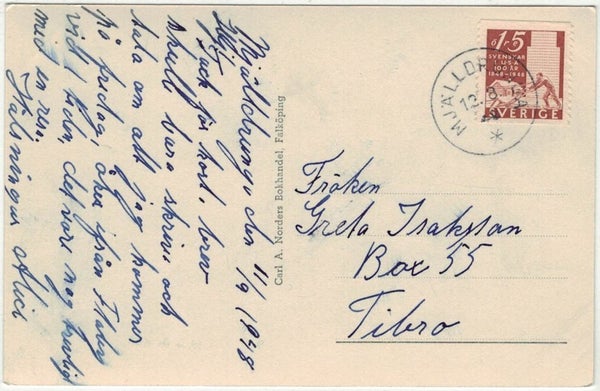 Mjäldrunga den 11/9 1948
Hej och för kort, brev
skall bara skriva och
tala om att jag kommer
på fredag, åker ifrån
vid tiden, det var nog trevligt
med en resa.
Hälsningar Alice
Carl A. Norders Bokhandel, Falköping
15
SVENSKAR
I USA
100 ÅR
1848-1948
SVERIGE
MJÄLLDRUNGA
Fröken
Greta Isaksson
Box 55
Tibro